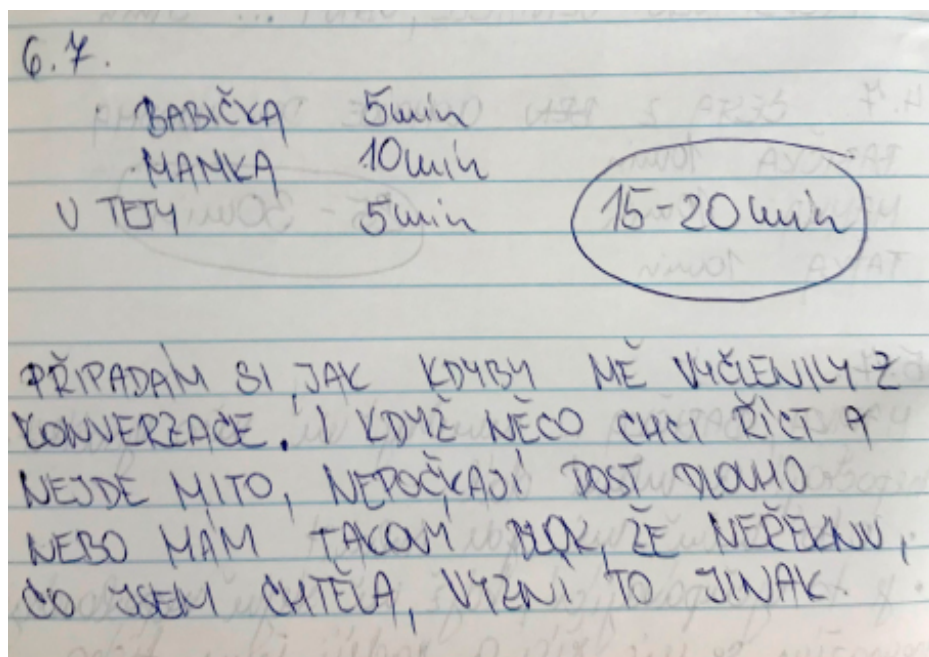 6.7.
BABIČKA 5min
MAMKA 10min
U TETY 5min 15-20min
PŘIPADÁM SI, JAK KDYBY MĚ VYČLENILY Z
KONVERZACE. I KDYŽ NĚCO CHCI ŘÍCT A
NEJDE MITO, NEPOČKAJÍ DOST DLOUHO
NEBO MÁM TAKOVÝ BLOK, ŽE NEŘEKNU,
CO JSEM CHTĚLA, VYZNÍ TO JINAK.